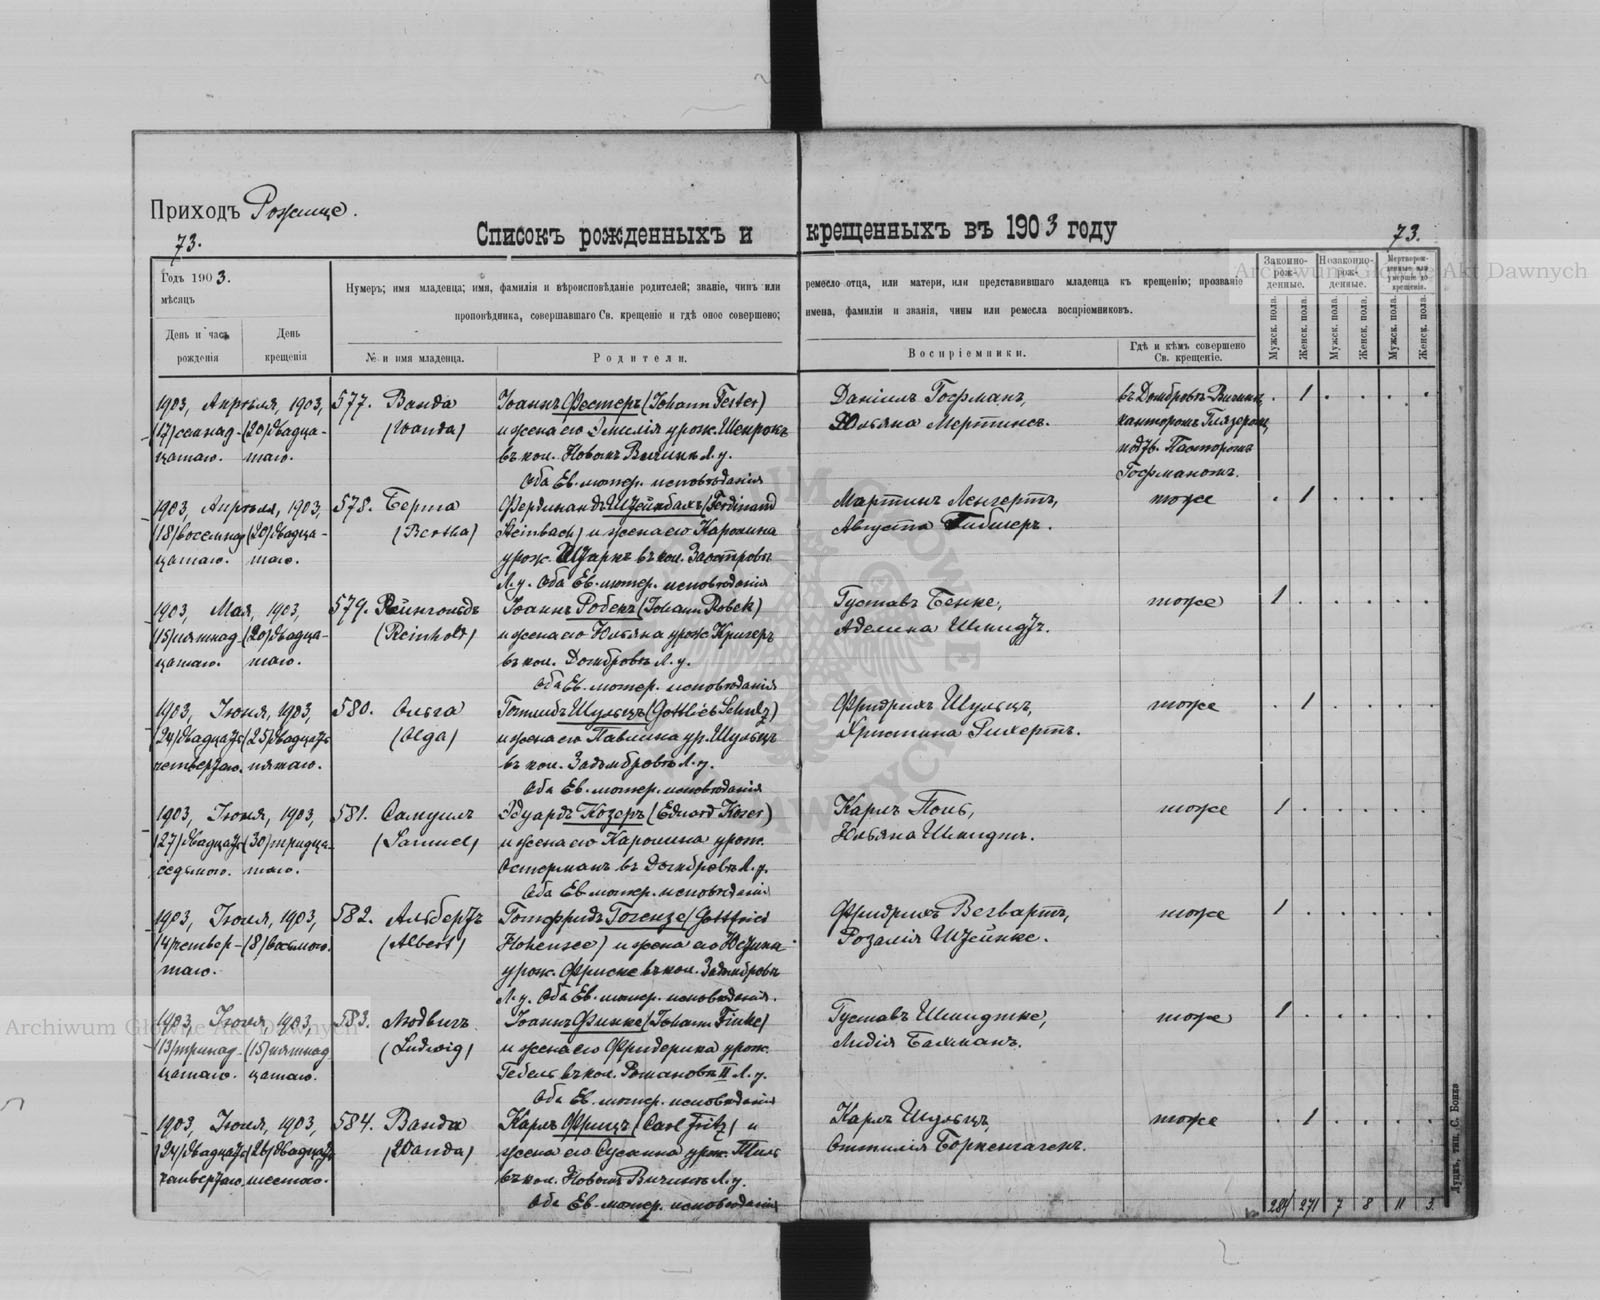 Приходъ Рожище.
73.
Списокъ рожденныхъ и крещенныхъ въ 1903 году
73.
Годъ 1903.
мѣсяцъ
День и часъ рожденія
День крещенія
Нумеръ; имя младенца; имя, фамилія и вѣроисповѣданіе родителей; званіе, чинъ или
проповѣдника, совершавшаго Св. крещеніе и гдѣ оное совершено;
№ и имя младенца.
Родители.
ремесло отца, или матери, или представившаго младенца къ крещенію; прозваніе
имена, фамиліи и званія, чины или ремесла воспріемниковъ.
Воспріемники.
Гдѣ и кѣмъ совершено
Св. крещеніе.
Законно-
рож-
денные.
Незаконно-
рож-
денные.
Мертворож-
денные или
умершіе до
крещенія.
Мужск. пола.
Женск. пола.
Мужск. пола.
Женск. пола.
Мужск. пола.
Женск. пола.
1903, Апрѣля, 1903,
(17) семнад-
цатаго.
(20) двадца-
таго.
577. Ванда
(Wanda)
Іоаннъ Фестеръ (Johann Fester)
и жена его Эмилія урож. Шенрокъ
въ кол. Новомъ Вичинѣ Л. у.
Оба Ев. лютер. исповѣданія
Даніилъ Гофманъ,
Юльяна Мертинсъ.
въ Домбровѣ-Вичинѣ
канторомъ Глязеромъ,
подтв. Пасторомъ
Гофманомъ.
1
1903, Апрѣля, 1903,
(18) восемнад
цатаго.
(20) двадца-
таго.
578. Берта
(Bertha)
Фердинандъ Штейнбахъ (Ferdinand
Steinbach) и жена его Каролина
урож. Штаркъ въ кол. Заостровѣ
Л. у. Оба Ев. лютер. исповѣданія
Мартинъ Ленгертъ,
Августа
тоже
1
1903, Мая, 1903,
(15) пятнад
цатаго.
(20) двадца-
таго.
579. Рейнгольдъ
(Reinhold)
Іоаннъ Робекъ (Johann Robek)
и жена его Юльяна урож. Кригеръ
въ кол. Домбровѣ Л. у.
Оба Ев. лютер. исповѣданія
Густавъ Бенке,
Аделина Шмидтъ.
тоже
1
1903, Іюня, 1903,
(24) двадцать
четвертаго.
(25) двадцать
пятаго.
580. Ольга
(Olga)
Готлибъ Шульцъ (Gottlieb Schulz)
и жена его Павлина ур. Шульцъ
въ кол. Задомбровѣ Л. у.
Оба Ев. лютер. исповѣданія
Фридрихъ Шульцъ,
Христина Рихертъ.
тоже
1
1903, Іюня, 1903,
(27) двадцать
седьмого.
(30) тридца-
таго.
581. Самуилъ
(Samuel)
Эдуардъ Козеръ (Eduard Koser)
и жена его Каролина урож.
Остерманъ въ Домбровѣ Л. у.
Оба Ев. лютер. исповѣданія
Карлъ Поль,
Юльяна Шмидтъ.
тоже
1
1903, Іюля, 1903,
(4) четвер-
таго.
(8) восьмого.
582. Альбертъ
(Albert)
Готфридъ Гогензе (Gottfried
Hohensee) и жена его Юстина
урож. Фриске въ кол. Задомбровѣ
Л. у. Оба Ев. лютер. исповѣданія.
Фридрихъ Вегвартъ,
Розалія Штейнке.
тоже
1
1903, Іюля, 1903,
(13) тринад-
цатаго.
(15) пятнад
цатаго.
583. Людвигъ
(Ludwig)
Іоаннъ Финке (Johann Finke)
и жена его Фридерика урож.
Гебель въ кол. Романовѣ II Л. у.
Оба Ев. лютер. исповѣданія
Густавъ Шмидтке,
Лидія Бахманъ.
тоже
1
1903, Іюля, 1903,
(24) двадцать
четвертаго.
(26) двадцать
шестого.
584. Ванда
(Wanda)
Карлъ Фрицъ (Carl Fritz) и
жена его Сусанна урож. Тиль
въ кол. Новомъ Вичинѣ Л. у.
Оба Ев. лютер. исповѣданія
Карлъ Шульцъ,
Оттилія Боркенгагенъ.
тоже
1
289 271 7 8 11 3
Луцкъ, тип. С. Бонка
Archiwum Główne Akt Dawnych
Archiwum Główne Akt Dawnych